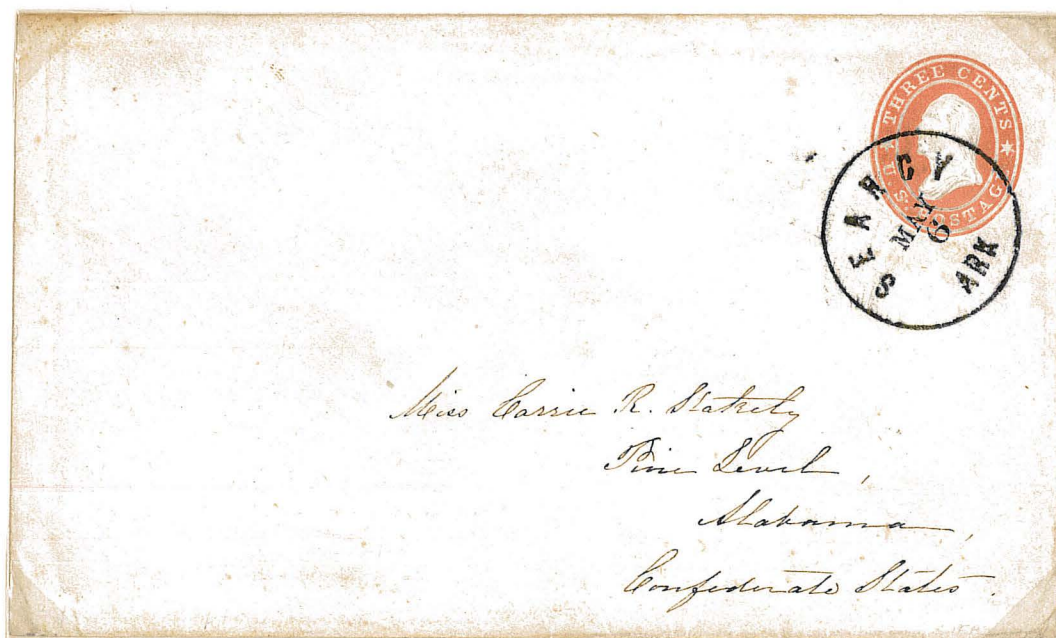 THREE CENTS
U.S. POSTAGE
SEARCY
MAY
6
ARK
Miss Carrie R. Stakely
Pine Level,
Alabama,
Confederate States.